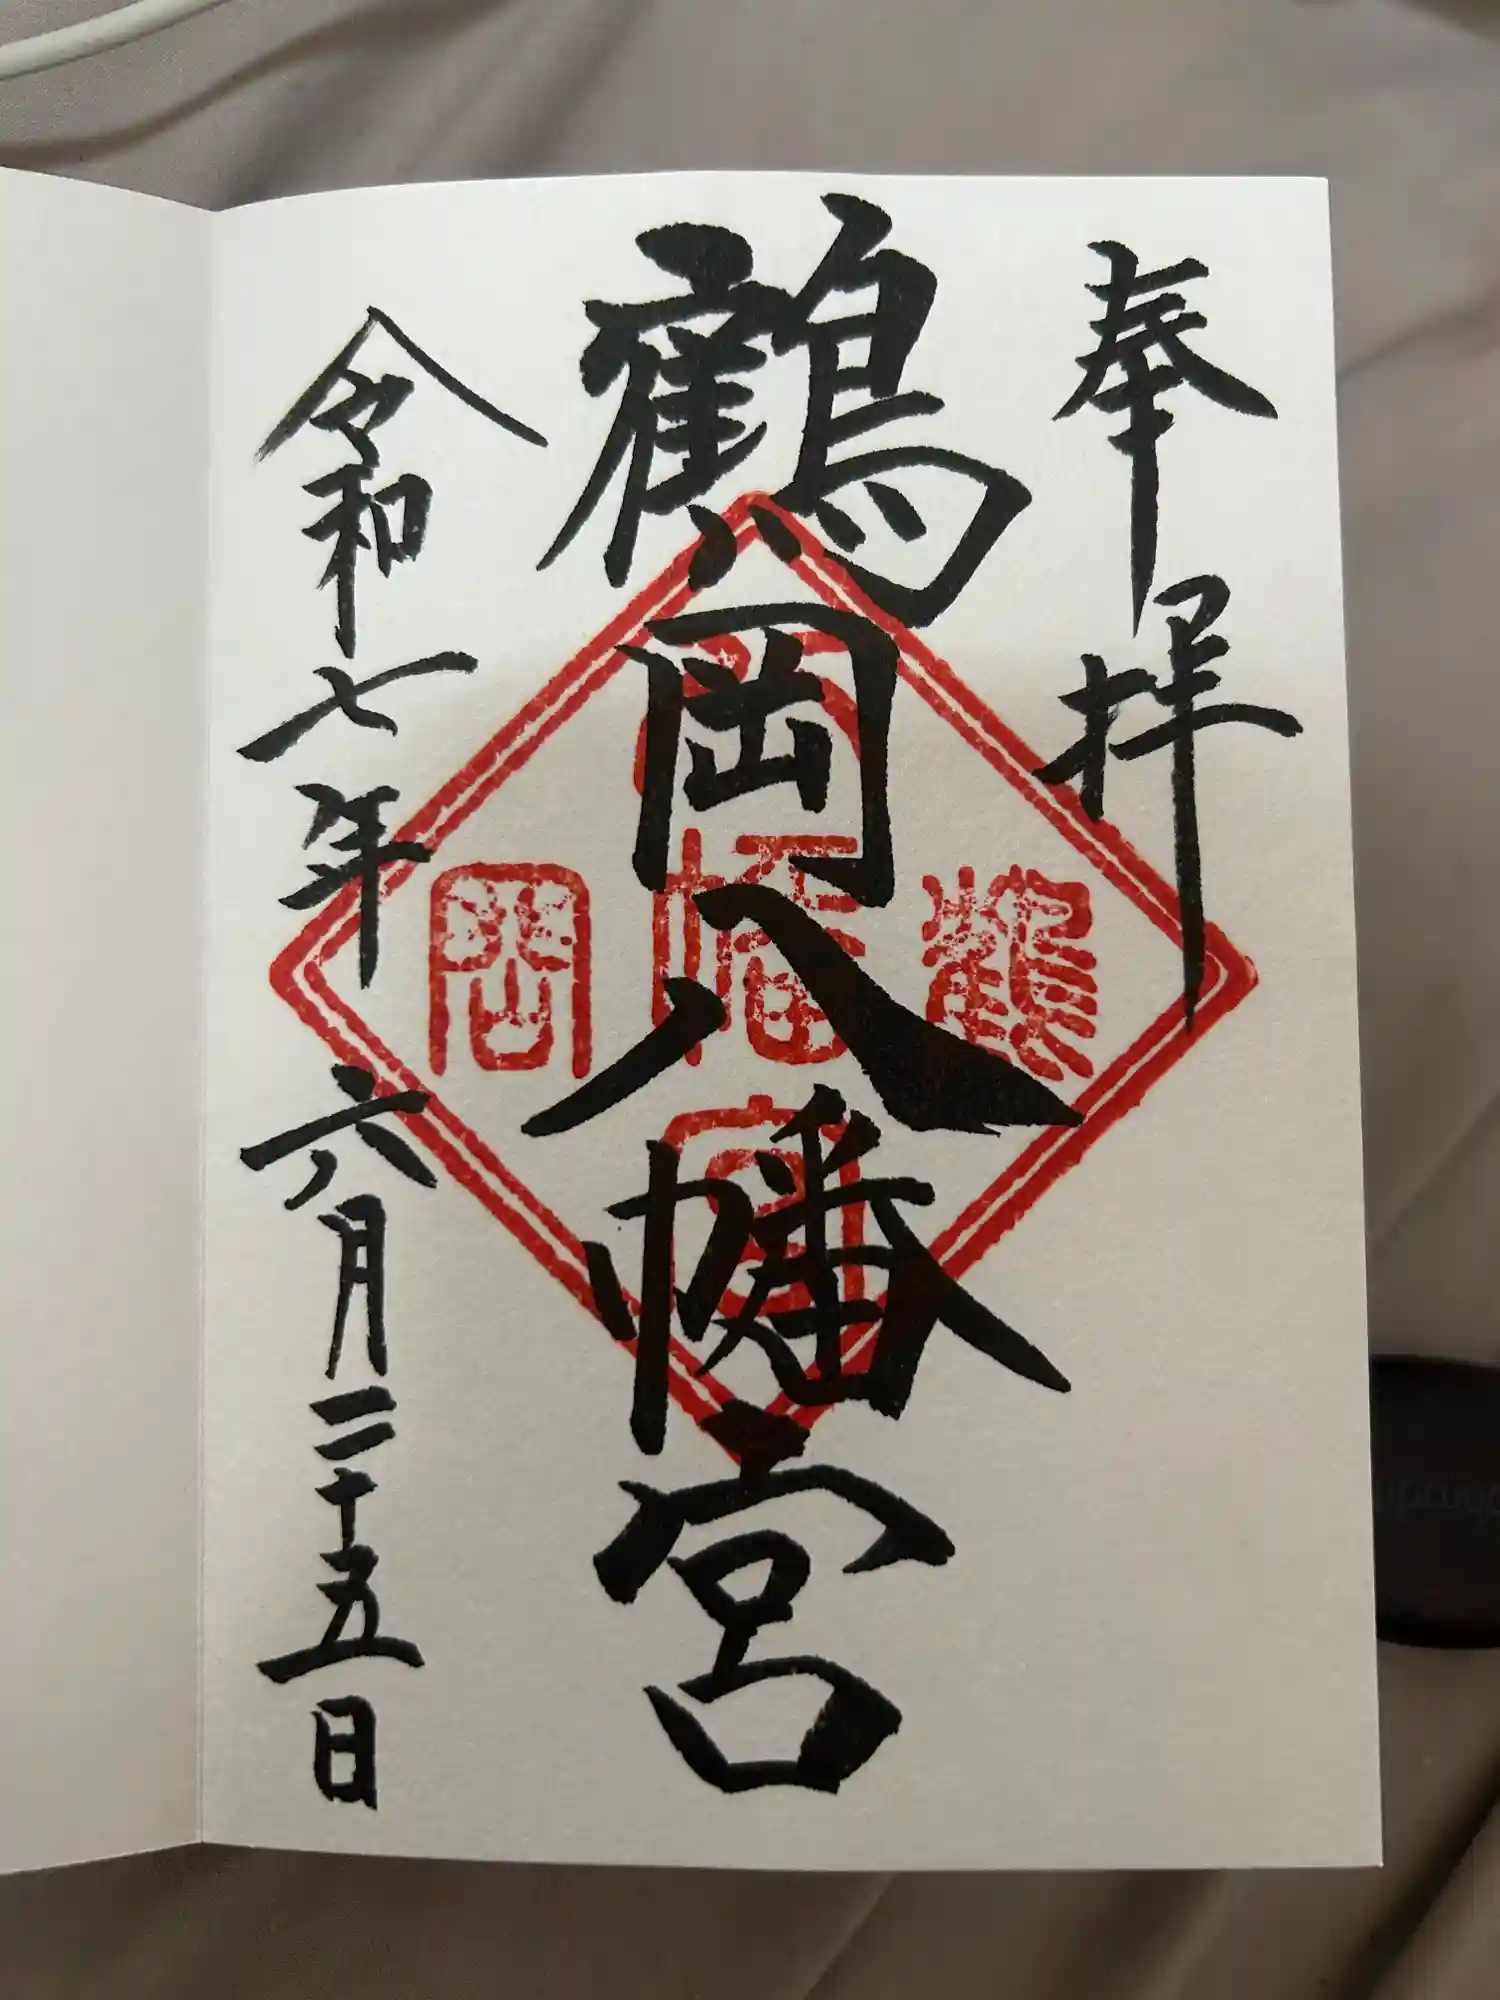 奉拝
鶴岡八幡宮
令和七年六月二十五日
八
鶴
幡
岡
宮